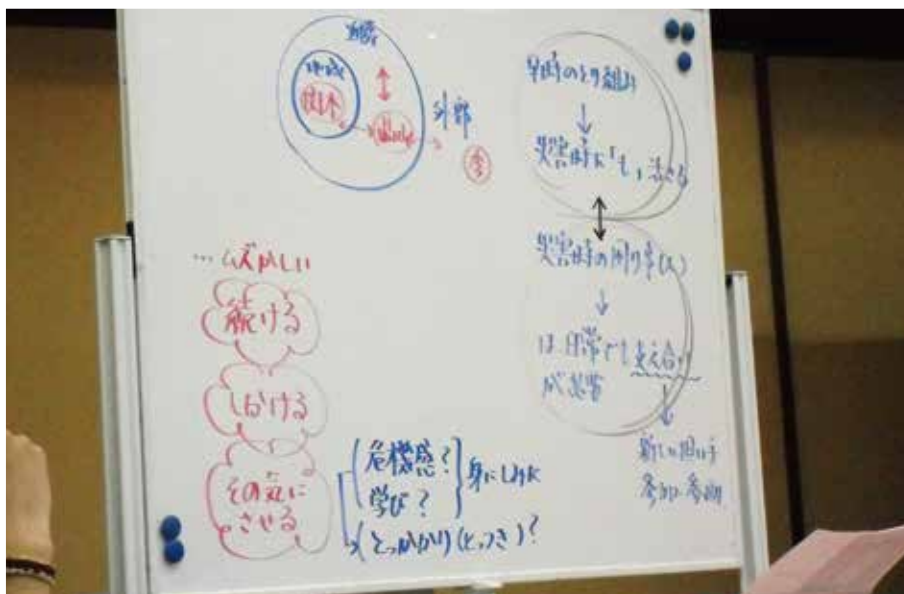 地域
外部
平時のとり組み
災害時に「も」活きる
災害時の困り事(人)
は日常でも支え合い
が必要
新しい担い手
…ムズかしい
続ける
しかける
その気に
させる
危機感?
学び?
身にしみた
とっかかり(とっつき)?